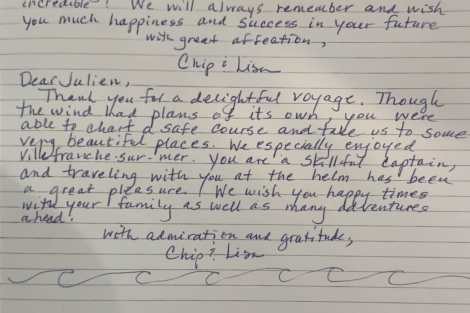 incredible! We will always remember and wish
you much happiness and success in your future
with great affection,
Chip & Lisa
Dear Julien,
Thank you for a delightful voyage. Though
the wind had plans of its own, you were
able to chart a safe course and take us to some
very beautiful places. We especially enjoyed
Villefranche-sur-mer. You are a skillful captain,
and traveling with you at the helm has been
a great pleasure! We wish you happy times
with your family as well as many adventures
ahead!
With admiration and gratitude,
Chip & Lisa